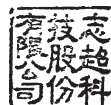 志超科
技股份
有限公司